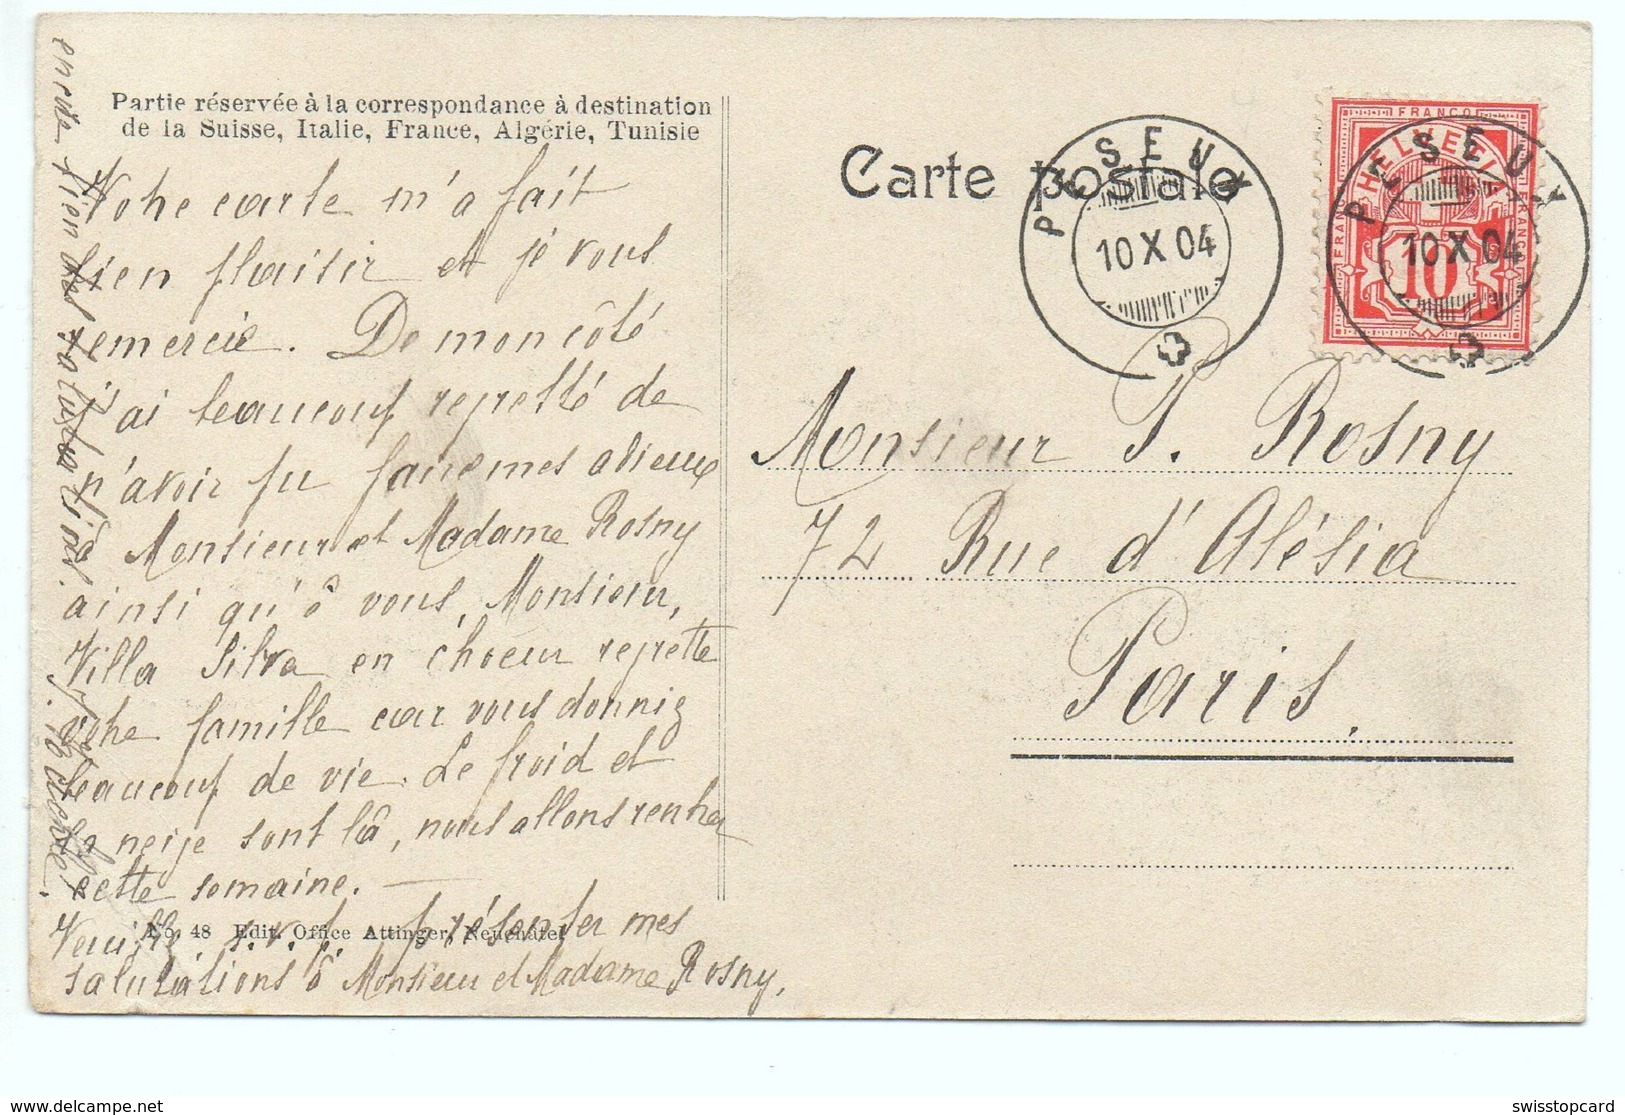 Partie réservée à la correspondance à destination
de la Suisse, Italie, France, Algérie, Tunisie
Carte postale
PESEUX
10 X 04
PESEUX
10 X 04
FRANCO
HELVETIA
FRANCO
FRANCO
10
Votre carte m'a fait
bien plaisir et je vous
remercie. De mon côté
j'ai beaucoup regretté de
n'avoir pu faire mes adieux
à Monsieur et Madame Rosny
ainsi qu'à vous, Monsieur,
Villa Silva en choeur regrette
votre famille car vous donniez
beaucoup de vie. Le froid et
la neige sont là, nous allons rentrer
cette semaine. —
Veuillez s.v.p. présenter mes
salutations à Monsieur et Madame Rosny,
Monsieur P. Rosny
72 Rue d'Alésia
Paris.
No. 48 Edit. Office Attinger, Neuchâtel
swisstopcard